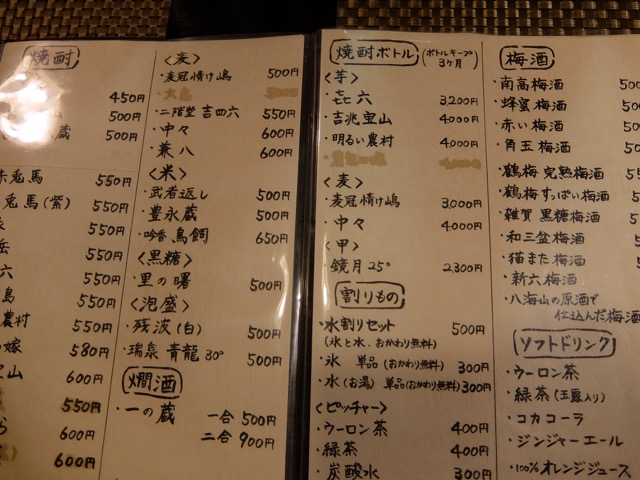 焼酎
450円
500円
蔵 500円
赤兎馬 550円
兎馬(紫) 550円
550円
岳 550円
六 550円
島 550円
農村 550円
の嫁 580円
宝山 600円
550円
ら 600円
600円
〈麦〉
・麦冠情け嶋 500円
・二階堂 吉四六 550円
・中々 600円
・兼八 600円
〈米〉
・武者返し 500円
・豊永蔵 500円
・吟香 鳥飼 650円
〈黒糖〉
・里の曙 500円
〈泡盛〉
・残波(白) 500円
・瑞泉 青龍 30° 500円
燗酒
・一の蔵 一合 500円
二合 900円
焼酎ボトル (ボトルキープ 3ヶ月)
〈芋〉
・㐂六 3,200円
・吉兆宝山 4,000円
・明るい農村 4,000円
〈麦〉
・麦冠情け嶋 3,000円
・中々 4,000円
〈甲〉
・鏡月 25° 2,300円
割りもの
・水割りセット 500円
(氷と水、おかわり無料)
・氷 単品(おかわり無料) 300円
・水(お湯) 単品(おかわり無料) 300円
〈ピッチャー〉
・ウーロン茶 400円
・緑茶 400円
・炭酸水 300円
梅酒
・南高梅酒 500
・蜂蜜梅酒 500
・赤い梅酒 50
・角玉梅酒 50
・鶴梅 完熟梅酒 5
・鶴梅 すっぱい梅酒 5
・雑賀 黒糖梅酒 5
・和三盆梅酒 5
・猫また梅酒
・新六梅酒
・八海山の原酒で
仕込んだ梅酒
ソフトドリンク
・ウーロン茶
・緑茶(玉露入り)
・コカコーラ
・ジンジャーエール
・100%オレンジジュース